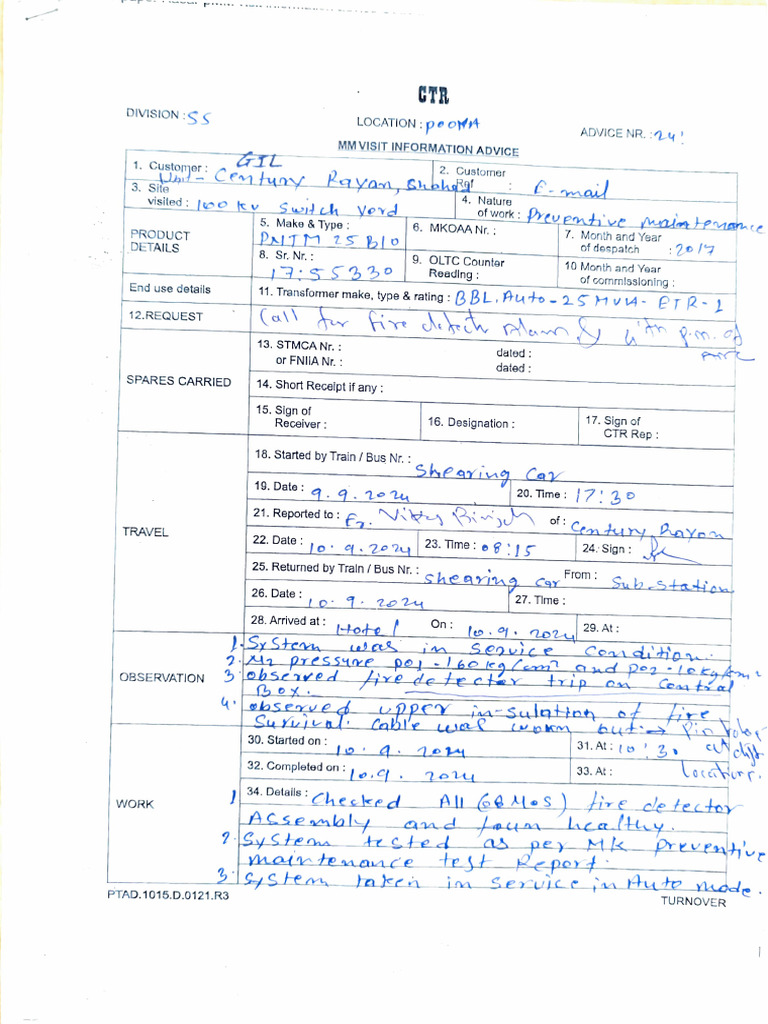 CTR
DIVISION : SS
LOCATION : POONA
ADVICE NR. : 24
MM VISIT INFORMATION ADVICE
1. Customer : GIL
Unit - Century Rayon, Shahad
2. Customer Ref : E-mail
3. Site visited : 100 KV Switch Yerd
4. Nature of work : Preventive maintenance
PRODUCT DETAILS
5. Make & Type : PNITM 25 B10
6. MKOAA Nr. :
7. Month and Year of despatch : 2017
8. Sr. Nr. : 17:55330
9. OLTC Counter Reading :
10 Month and Year of commissioning :
End use details
11. Transformer make, type & rating : BBL. Auto - 25 MVA - ETR - 1
12.REQUEST
Call for fire detech & p.m. of
SPARES CARRIED
13. STMCA Nr. : dated :
or FNIIA Nr. : dated :
14. Short Receipt if any :
15. Sign of Receiver :
16. Designation :
17. Sign of CTR Rep :
TRAVEL
18. Started by Train / Bus Nr. : Shearing Car
19. Date : 9.9.2024
20. Time : 17:30
21. Reported to : Er. of : Century Rayon
22. Date : 10.9.2024
23. Time : 08:15
24. Sign :
25. Returned by Train / Bus Nr. : Shearing car From : Sub.Station
26. Date : 10.9.2024
27. Time :
28. Arrived at : Hotel On : 10.9.2024
29. At :
OBSERVATION
1. System was in Service Condition.
2. N2 pressure PO1 - 160 kg/cm² and PO2 - 10 kg/cm²
3. observed fire detector trip on Control
Box.
4. observed upper in-sulation of fire
Survival. cable was worn out →
Location.
WORK
30. Started on : 10.9.2024
31. At : 10:30
32. Completed on : 10.9.2024
33. At :
34. Details :
1 Checked All (68 Mos) fire detector
Assembly and foun healthy.
2. System tested as per MK preventive
maintenance test Report.
3. System taken in Service in Auto mode.
PTAD.1015.D.0121.R3
TURNOVER